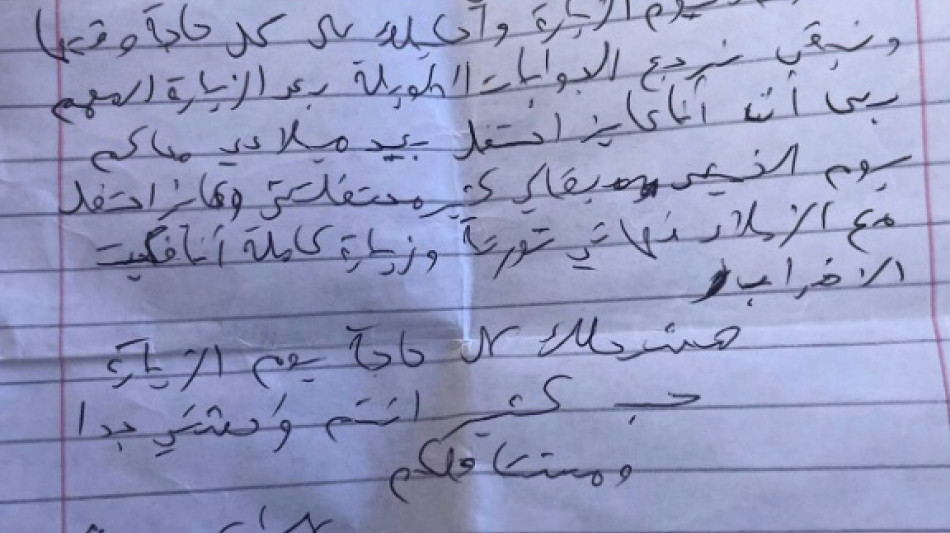 يوم الزيارة وأحكيلك كل حاجة وقتها
ونبقى نرجع الجوابات الطويلة بعد الزيارة المهم
بس أنا عايز احتفل بعيد ميلادي معاكم
يوم الخميس بقالي كتير محتفلتش وعايز احتفل
مع الأولاد فهاتي تورتة وزيارة كاملة أنا فكيت
الاضراب
هشرحلك كل حاجة يوم الزيارة
حب كتير انتم وحشتني جدا
ومشتاقلكم